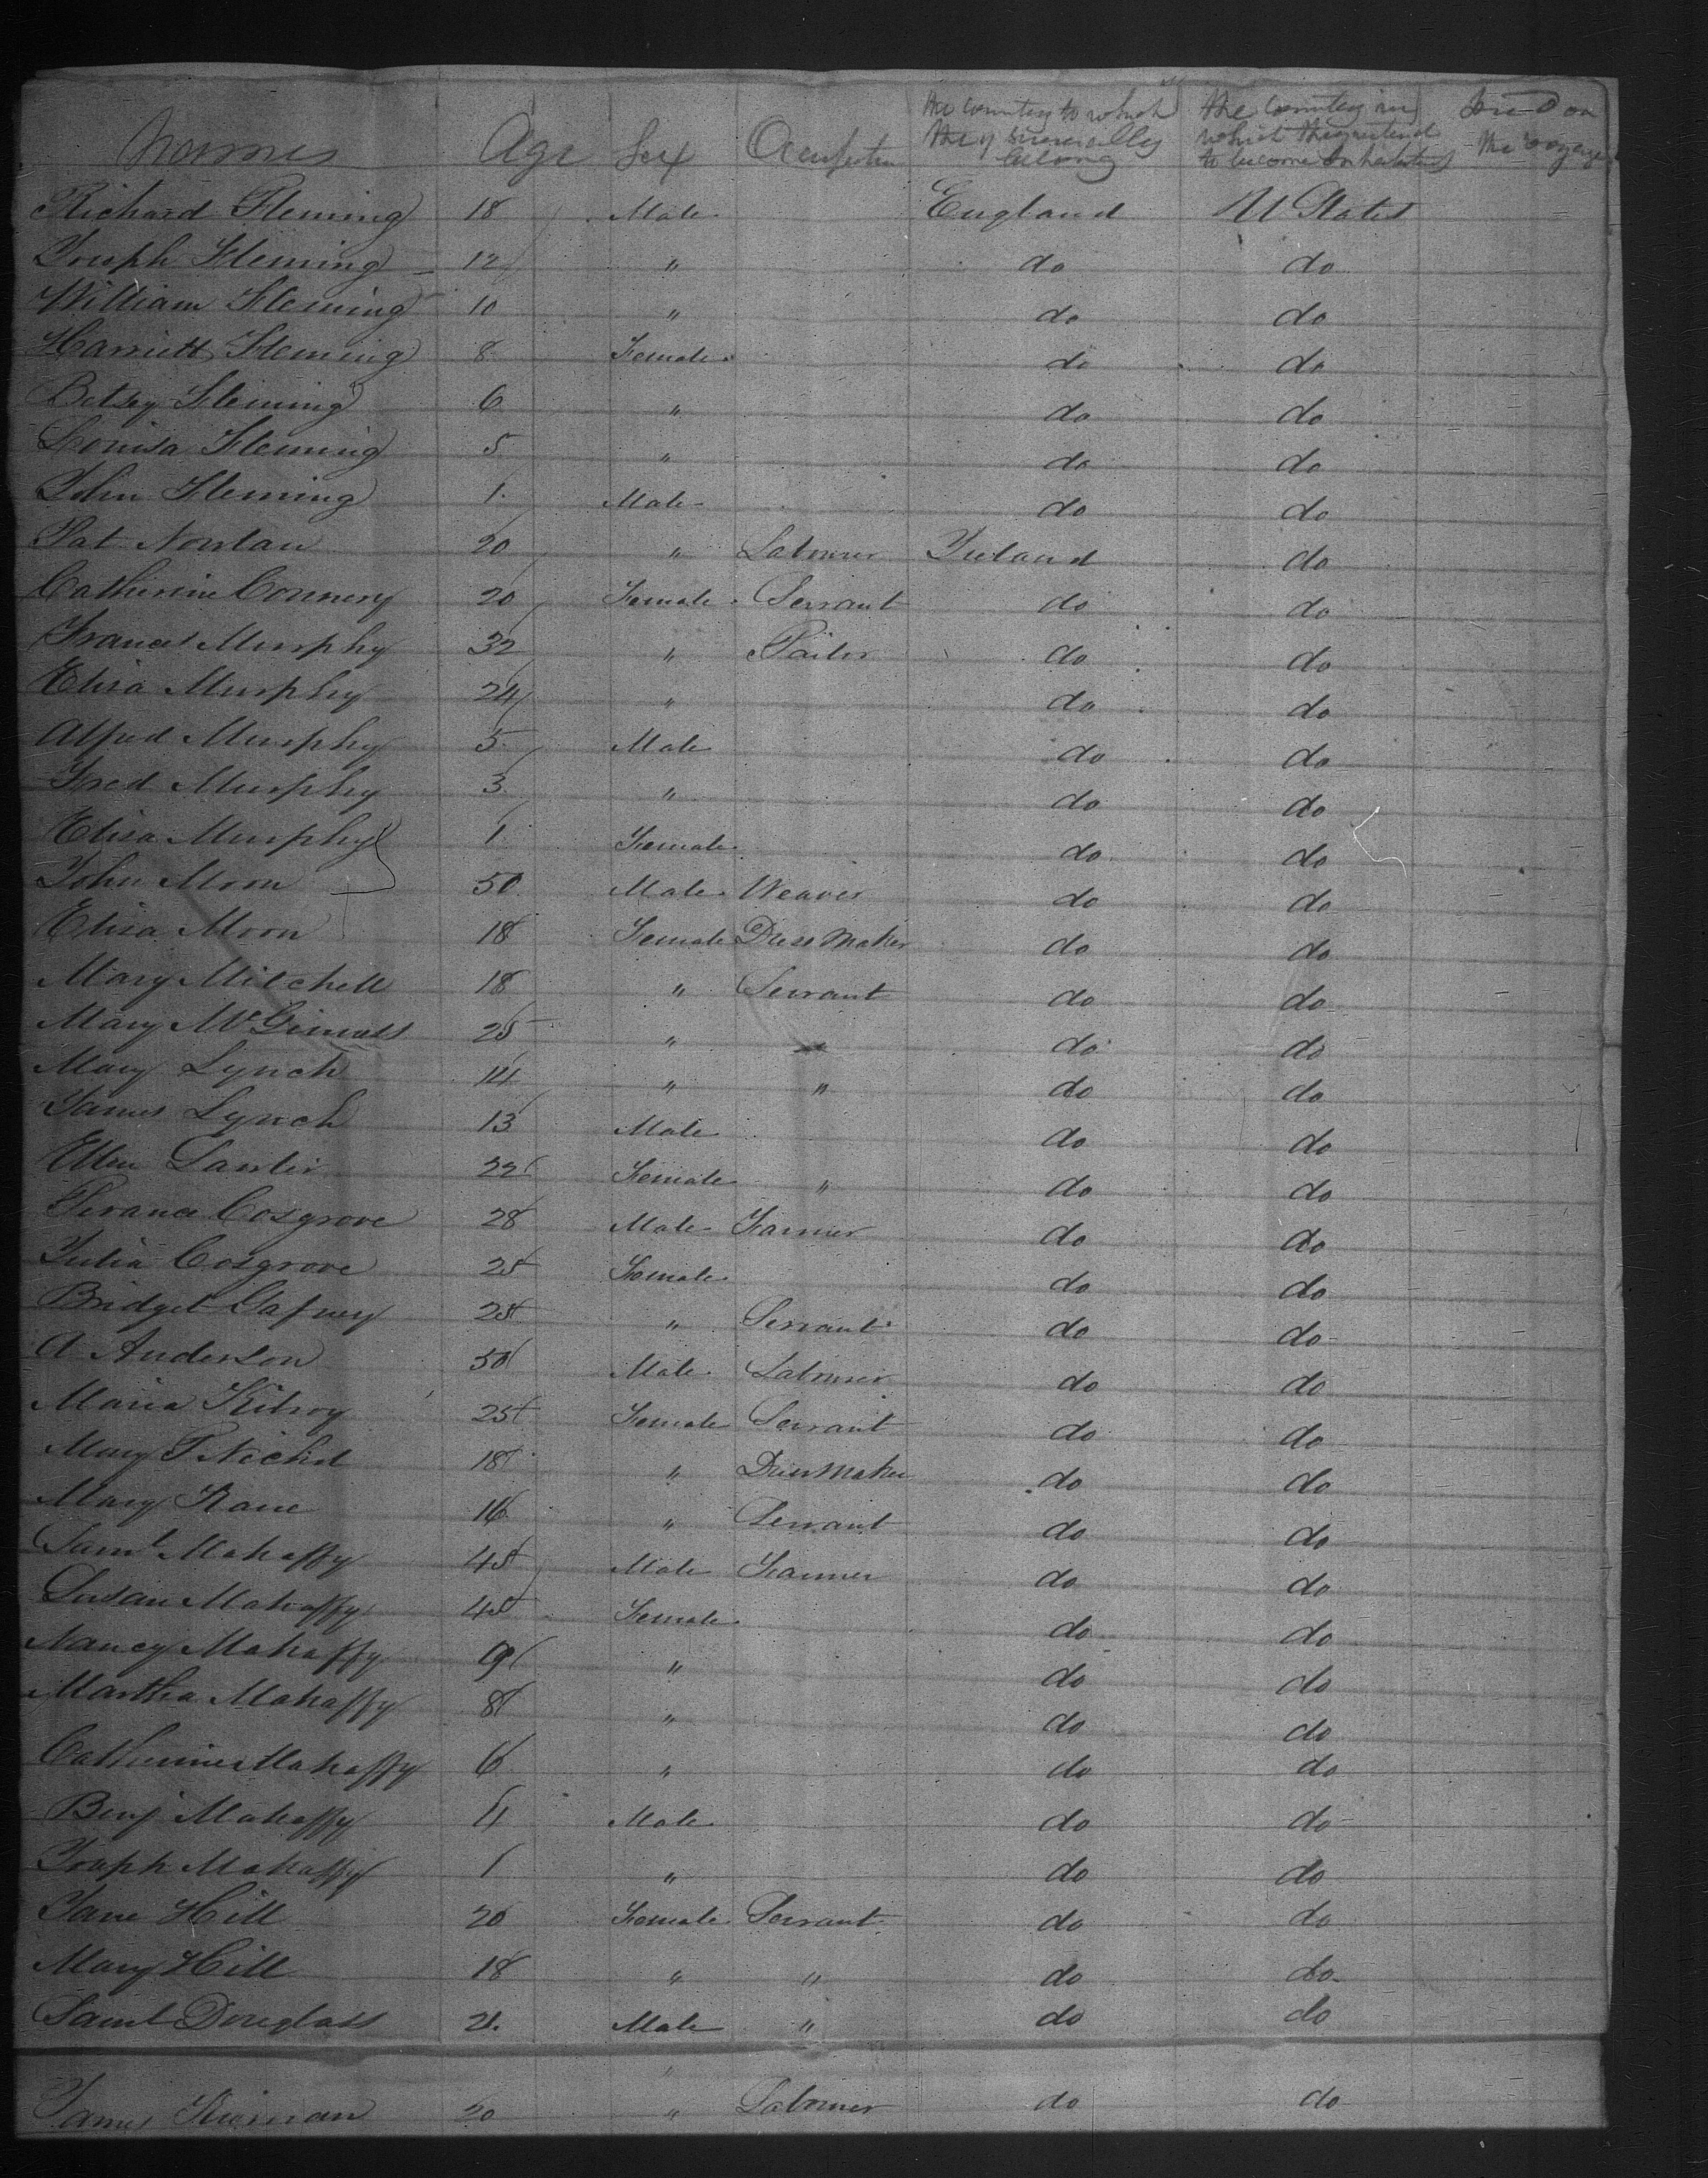 Names Age Sex Occupation the country to which they severally belong the Country in which they intend to become Inhabitants Died on the voyage
Richard Fleming 18 Male England U States
Joseph Fleming 12 " do do
William Fleming 10 " do do
Harriett Fleming 8 Female do do
Betsey Fleming 6 " do do
Louisa Fleming 5 " do do
John Fleming 1 Male do do
Pat Nowlan 20 " Labourer Ireland do
Catherine Connery 20 Female Servant do do
Frances Murphy 32 " Tailor do do
Eliza Murphy 24 " do do
Alfred Murphy 5 Male do do
Fred Murphy 3 " do do
Eliza Murphy 1 Female do do
John Moon 50 Male Weaver do do
Eliza Moon 18 Female Dress Maker do do
Mary Mitchell 18 " Servant do do
Mary 25 " do do
Mary Lynch 14 " " do do
James Lynch 13 Male do do
Ellen Lawler 22 Female " do do
Cosgrove 28 Male Farmer do do
Julia Cosgrove 25 Female do do
Bridget Gafney 25 " Servant do do
A Anderson 50 Male Labourer do do
Maria Kilroy 25 Female Servant do do
Mary 18 " Dress Maker do do
Mary Kane 16 " Servant do do
Saml Mahaffy 45 Male Farmer do do
Susan Mahaffy 45 Female do do
Nancy Mahaffy 9 " do do
Martha Mahaffy 8 " do do
Catherine Mahaffy 6 " do do
Benj Mahaffy 4 Male do do
Joseph Mahaffy 1 " do do
Jane Hill 20 Female Servant do do
Mary Hill 18 " " do do
Saml Douglass 21. Male " do do
James 20 " Labourer do do